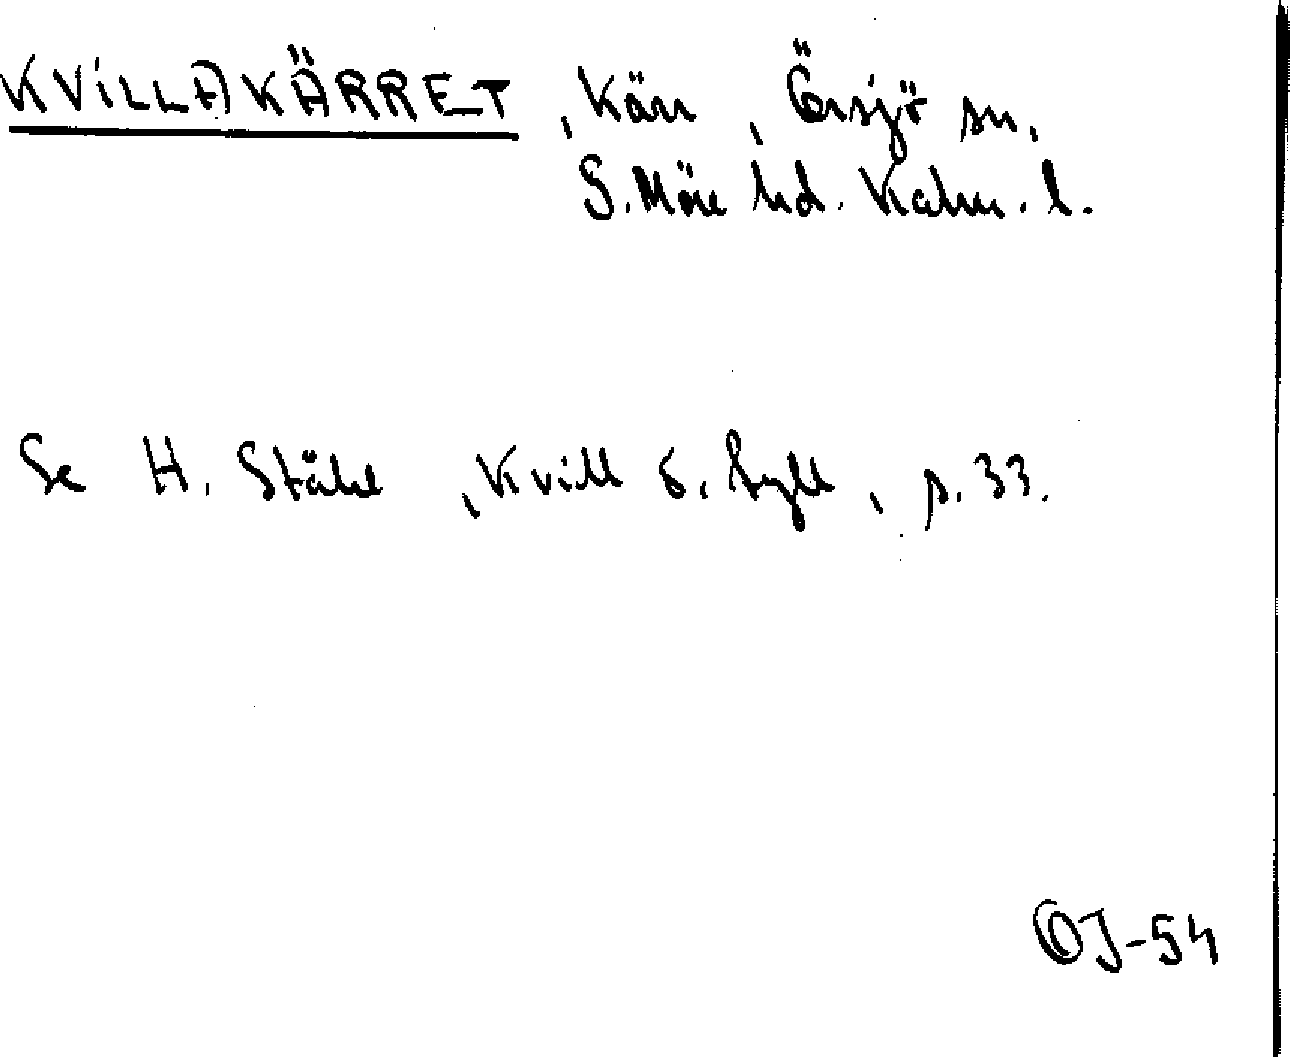 KVILLAKÄRRET, kärr, Örsjö sn,
S. Möre hd. Kalm. l.
Se H. Ståhl, Kvill o. tyll, s. 33.
OJ-54